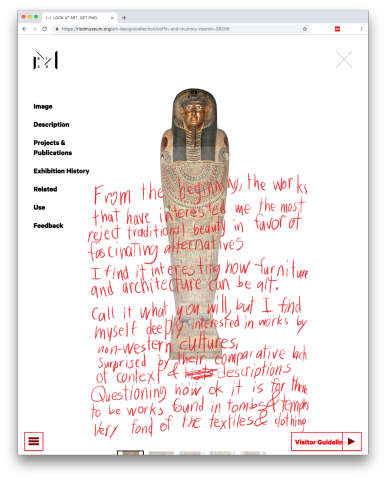 LOOK AT ART. GET PAID.
Image
Description
Projects &
Publications
Exhibition History
Related
Use
Feedback
From the beginning, the works
that have interested me the most
reject traditional beauty in favor of
fascinating alternatives
I find it interesting how furniture
and architecture can be art.
Call it what you will, but I find
myself deeply interested in works by
non-western cultures,
Surprised by their comparative lack
of context & descriptions
Questioning how ok it is for there
to be works found in tombs & temples
Very fond of the textiles & clothing
Visitor Guidelin